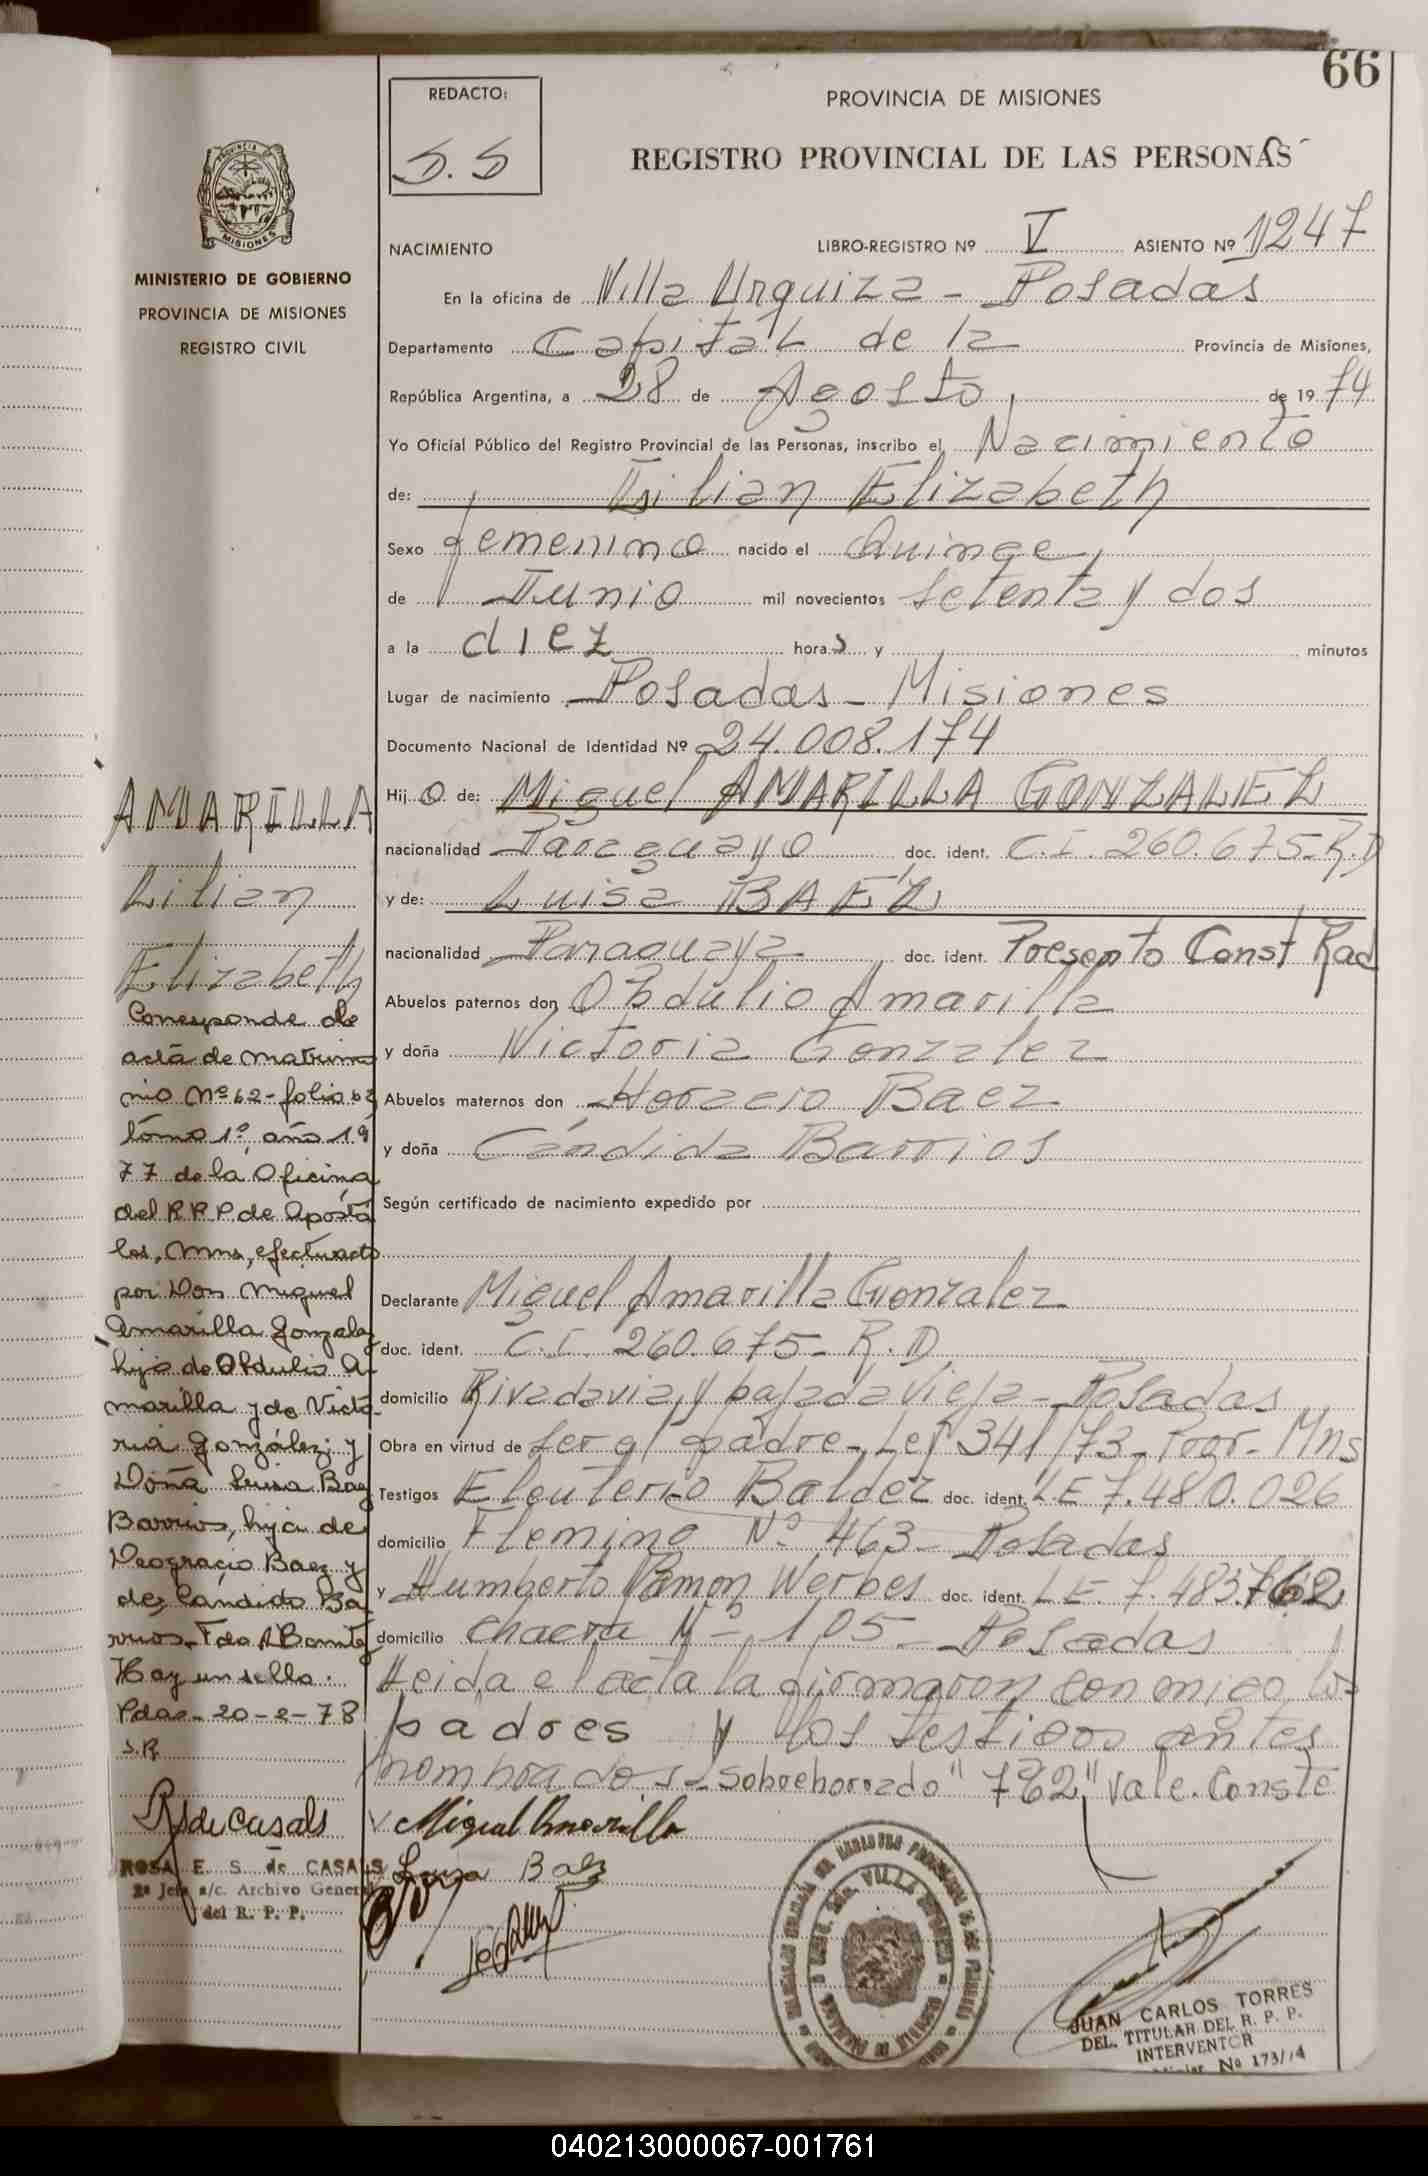 66
REDACTO:
S.S
PROVINCIA DE MISIONES
REGISTRO PROVINCIAL DE LAS PERSONAS
MISIONES
MINISTERIO DE GOBIERNO
PROVINCIA DE MISIONES
REGISTRO CIVIL
NACIMIENTO LIBRO-REGISTRO Nº V ASIENTO Nº 1247
En la oficina de Villa Urquiza - Posadas
Departamento Capital de la Provincia de Misiones,
República Argentina, a 28 de Agosto de 1974
Yo Oficial Público del Registro Provincial de las Personas, inscribo el Nacimiento
de: Lilian Elizabeth
Sexo femenino nacido el Quince
de Junio mil novecientos setenta y dos
a la diez horas y minutos
Lugar de nacimiento Posadas - Misiones
Documento Nacional de Identidad Nº 24.008.174
Hijo de: Miguel AMARILLA GONZALEZ
nacionalidad Paraguayo doc. ident. C.I. 260.675 - R.D
y de: Luisa BAEZ
nacionalidad Paraguaya doc. ident. Presento Const Rad
Abuelos paternos don Obdulio Amarilla
y doña Victoria Gonzalez
Abuelos maternos don Horacio Baez
y doña Cándida Barrios
Según certificado de nacimiento expedido por
Declarante Miguel Amarilla Gonzalez
doc. ident. C.I. 260.675 - R.D.
domicilio Rivadavia y bajada Vieja - Posadas
Obra en virtud de ser el padre - Ley 341/73 - Pror - Mns
Testigos Eleuterio Baldez doc. ident. LE 7.480.026
domicilio Fleming Nº 463 - Posadas
y Humberto Ramon Werbes doc. ident. LE. 7.483.762
domicilio chacra Nº 105 - Posadas
Leida el acta la firmaron conmigo los
padres y los testigos antes
nombrados - sobreborrado "762" vale. Conste
AMARILLA
Lilian
Elizabeth
Corresponde al
acta de matrimo
nio Nº 62 - folio 62
tomo 1º, año 19
77 de la Oficina
del R P P de Aposto
les, Mns, efectuado
por Don Miguel
Amarilla Gonzalez
hijo de Obdulio A-
marilla y de Victo-
ria González; y
Doña Luisa Baez
Barrios, hija de
Deogracio Baez y
de Candida Ba
rrios - Fdo
Hay un sello.
Pdas - 20-2-78
S.R
RSdeCasals
ROSA E. S. de CASALS
2ª Jefe a/c. Archivo General
del R. P. P.
Miguel Amarilla
Luisa Baez
JUAN CARLOS TORRES
DEL. TITULAR DEL R. P. P.
INTERVENTOR
Nº 173/74
040213000067-001761